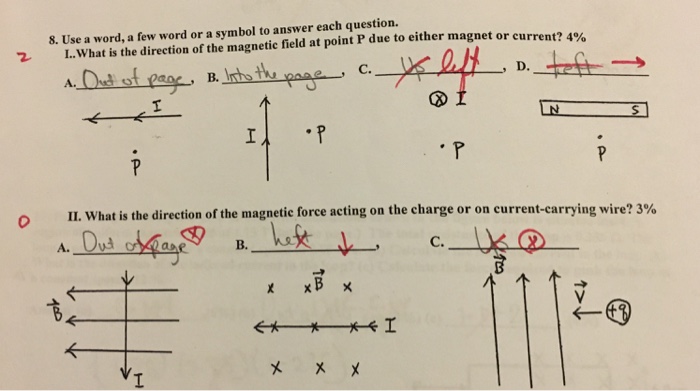 8. Use a word, a few word or a symbol to answer each question.
2 I..What is the direction of the magnetic field at point P due to either magnet or current? 4%
A. Out of page, B. Into the page, C. Up left, D. Left →
I I •P ⊗ I N S
P •P P
0 II. What is the direction of the magnetic force acting on the charge or on current-carrying wire? 3%
A. Out of page ⊗ B. Left ↓, C. Up ⊗
B x x B x B V
x x I +q
I x x x